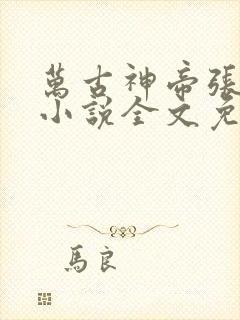 萬古神帝張
小說全文免
馬良